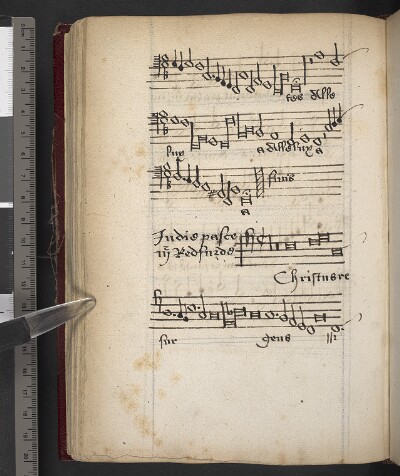 tes alle
luya allelluya
finis
a
In die pasce
iij Redfurde
Christus re
sur gens